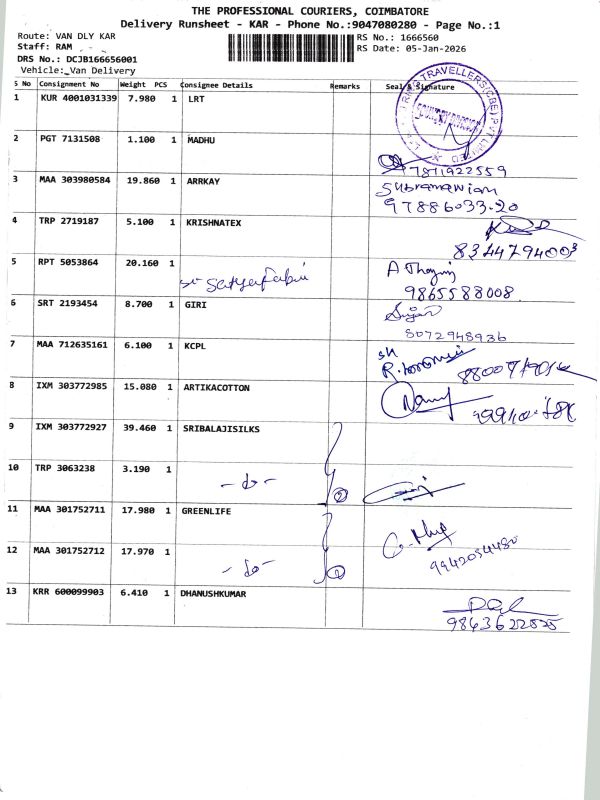 THE PROFESSIONAL COURIERS, COIMBATORE
Delivery Runsheet - KAR - Phone No.:9047080280 - Page No.:1
Route: VAN DLY KAR
RS No.: 1666560
Staff: RAM
RS Date: 05-Jan-2026
DRS No.: DCJB166656001
Vehicle: Van Delivery
S No Consignment No Weight PCS Consignee Details Remarks Seal & Signature
1 KUR 4001031339 7.980 1 LRT
TRAVELLERS(CBE)P
2 PGT 7131508 1.100 1 MADHU
7871922559
3 MAA 303980584 19.860 1 ARRKAY
Subramaniam
97886033.20
4 TRP 2719187 5.100 1 KRISHNATEX
8344794003
5 RPT 5053864 20.160 1
9865588008
6 SRT 2193454 8.700 1 GIRI
8072948936
7 MAA 712635161 6.100 1 KCPL
8 IXM 303772985 15.080 1 ARTIKACOTTON
9 IXM 303772927 39.460 1 SRIBALAJISILKS
10 TRP 3063238 3.190 1
- do -
2
11 MAA 301752711 17.980 1 GREENLIFE
12 MAA 301752712 17.970 1
- do -
9942054480
13 KRR 600099903 6.410 1 DHANUSHKUMAR
9843622525